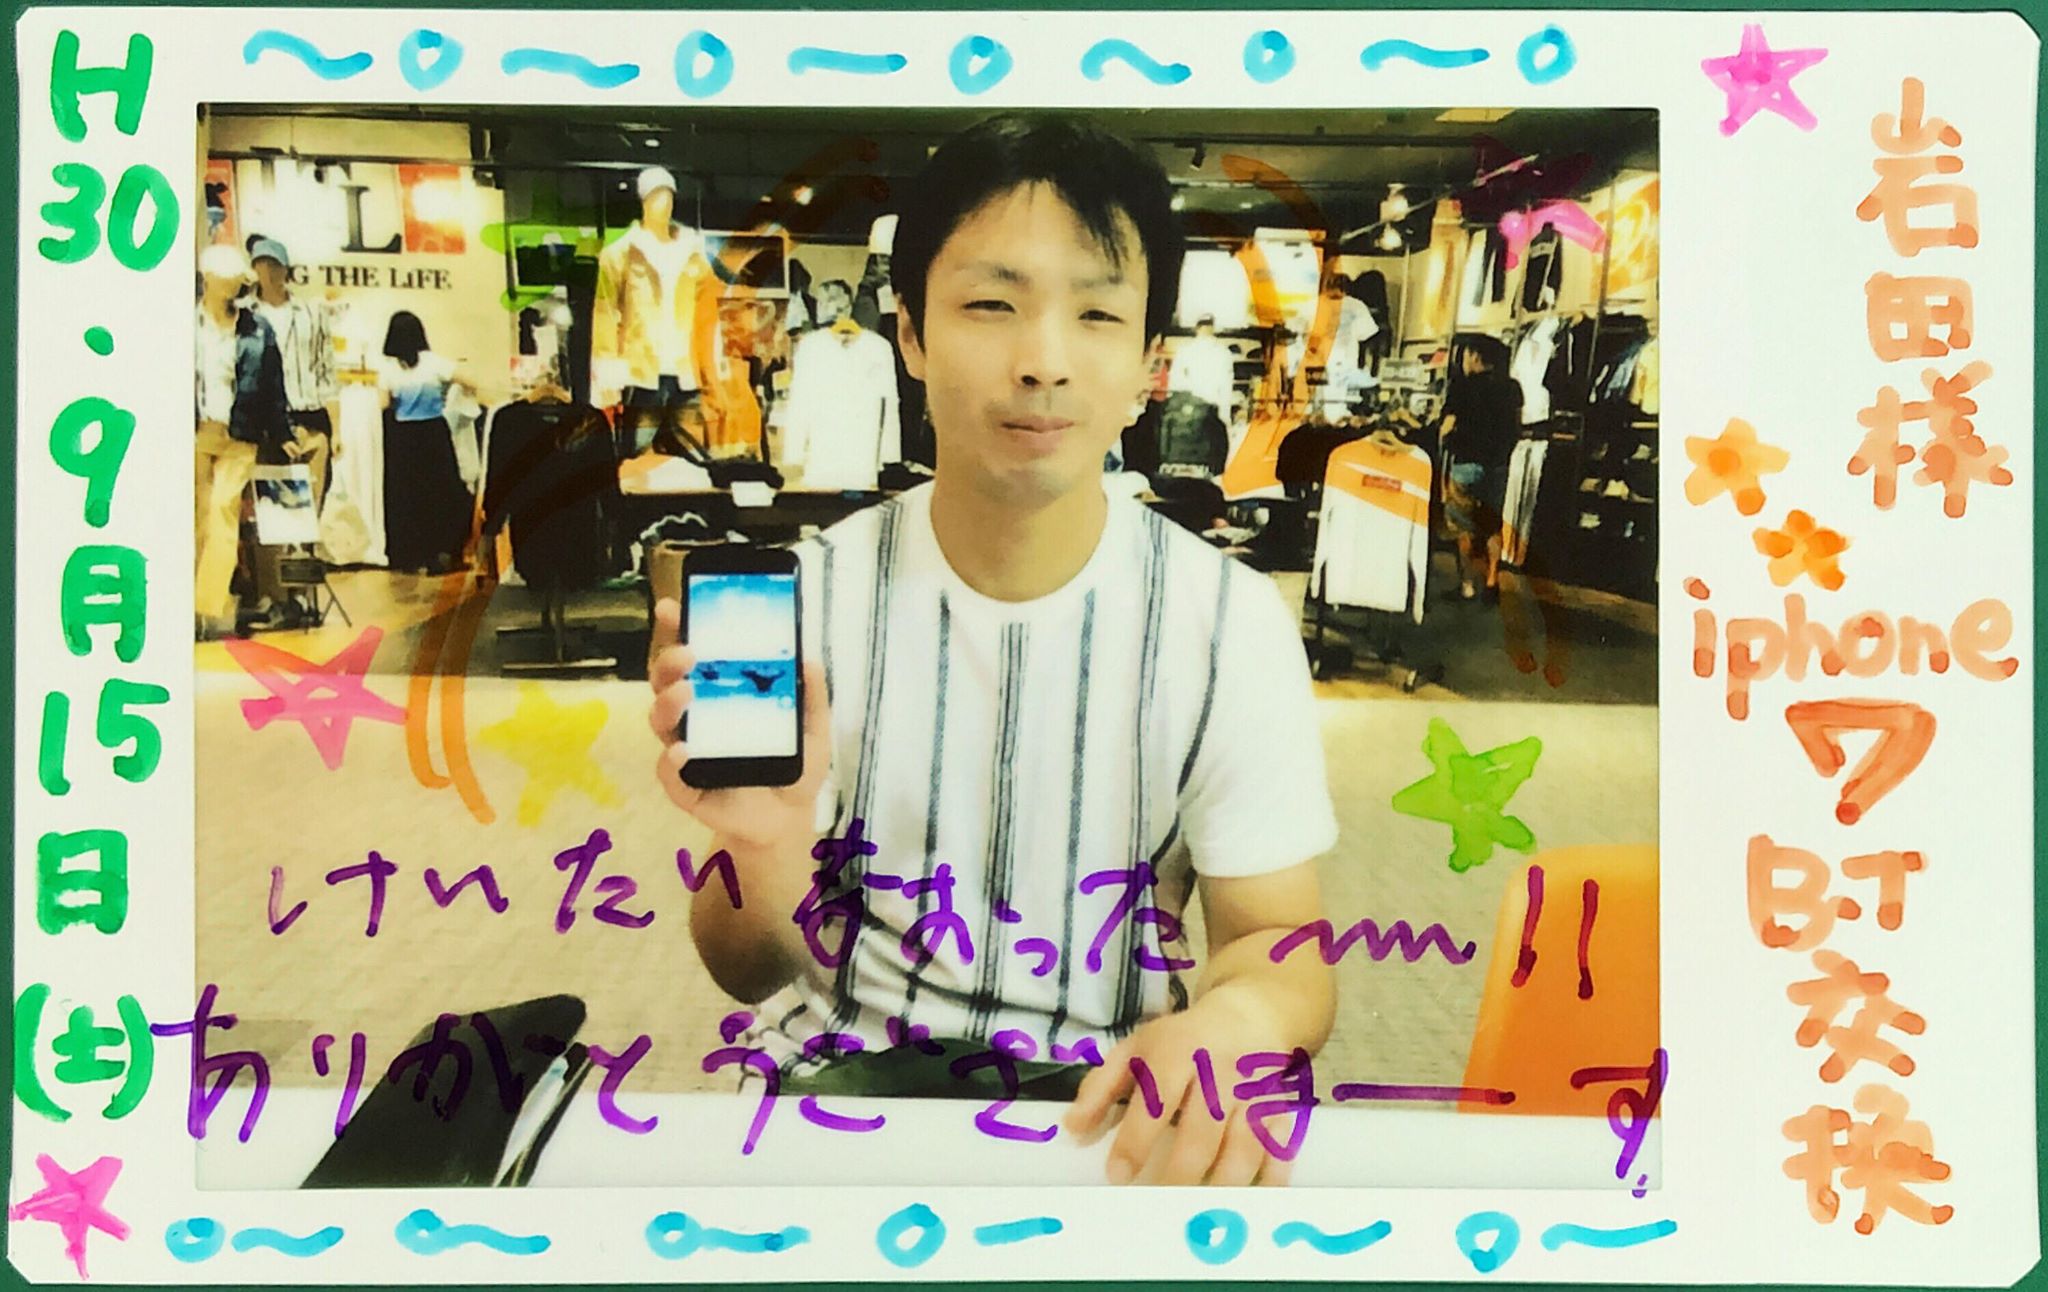 H30.9月15日(土)
岩田様
iphone7
BT交換
G THE LiFE
けいたいなおった〰!!
ありがとうございまーす